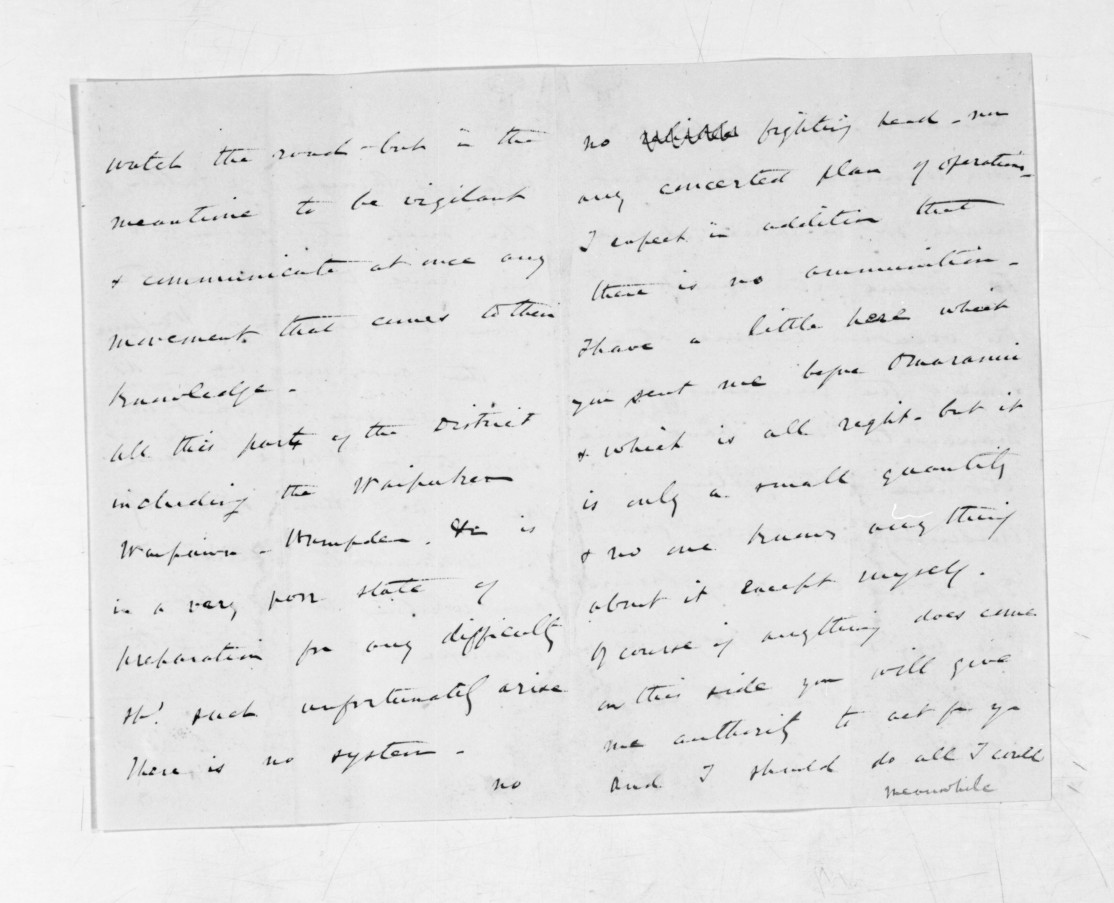 watch the road - but in the
meantime to be vigilant
& communicate at once any
movements that comes to their
knowledge -
All this part of the District
including the Waipukura
Waipawa - Hampden. &c is
in a very poor state of
preparation for any difficulty
shd. such unfortunately arise
There is no system -
no
no fighting head - nor
any concerted plan of operations -
I expect in addition that
there is no ammunition -
I have a little here which
you sent me before Omarunui
& which is all right - but it
is only a small quantity
& no one knows anything
about it except myself.
Of course if anything does come
on this side you will give
me authority to act for you
And I should do all I could
meanwhile